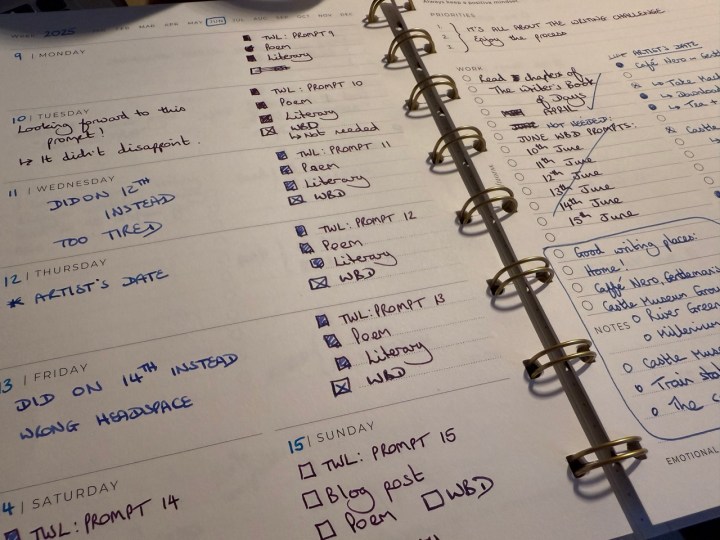 2025
MAR APR MAY JUN JUL AUG SEP OCT NOV DEC
9 | MONDAY
TWL: PROMPT 9
Poem
Literary
10 | TUESDAY
Looking forward to this
prompt!
↳ It didn't disappoint.
TWL: PROMPT 10
Poem
Literary
WBD
↳ Not needed
11 | WEDNESDAY
DID ON 12TH
INSTEAD
TOO TIRED
TWL: PROMPT 11
Poem
Literary
WBD
12 | THURSDAY
* ARTIST'S DATE
TWL: PROMPT 12
Poem
Literary
WBD
3 | FRIDAY
DID ON 14TH INSTEAD
WRONG HEADSPACE
TWL: PROMPT 13
Poem
Literary
WBD
4 | SATURDAY
TWL: PROMPT 14
15 | SUNDAY
TWL: PROMPT 15
Blog post
Poem
WBD
Always keep a positive mindset
PRIORITIES
1.
2.
3.
IT'S ALL ABOUT THE WRITING CHALLENGE.
Enjoy the process
WORK
Read chapter of
The Writer's Book
of Days
APRIL
NOT NEEDED:
JUNE WBD PROMPTS:
10th June
11th June
12th June
13th June
14th June
15th June
ARTIST'S DATE
Café Nero - Gent
↳ Take
↳ Download
↳ Tea +
Castle
Good writing places:
Home!
Caffé Nero, Gentleman's
Castle Museum Grou
River Green
Killerton
NOTES
Castle Mus
Train sta
The c
EMOTIONAL